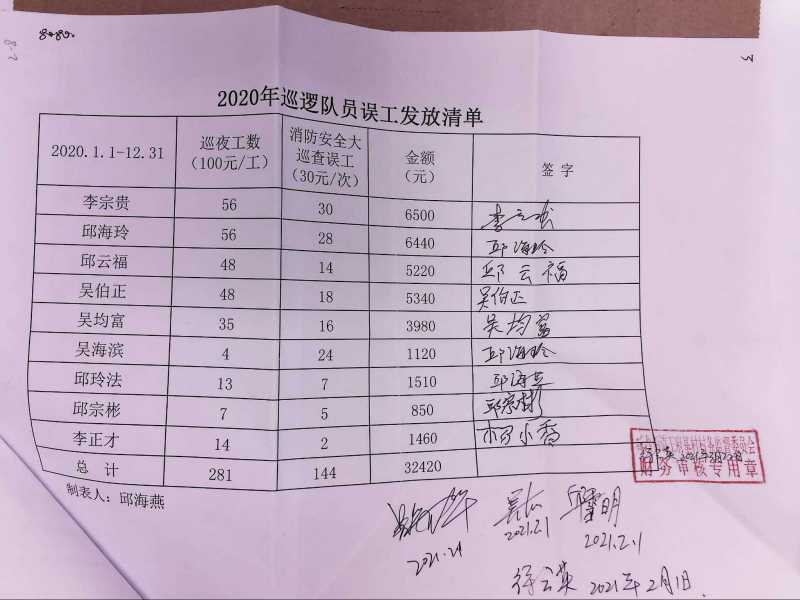 3
2020年巡逻队员误工发放清单
2020.1.1-12.31 巡夜工数（100元/工） 消防安全大巡查误工（30元/次） 金额（元） 签字
李宗贵 56 30 6500
邱海玲 56 28 6440 邱海玲
邱云福 48 14 5220 邱云福
吴伯正 48 18 5340 吴伯正
吴均富 35 16 3980 吴均富
吴海滨 4 24 1120 邱海玲
邱玲法 13 7 1510 邱海
邱宗彬 7 5 850 邱宗彬
李正才 14 2 1460 小香
总计 281 144 32420
制表人：邱海燕
财务审核专用章
2021.2.1
2021.2.1
徐云英 2021年2月1日.